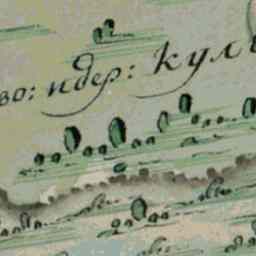 во: идер: кул